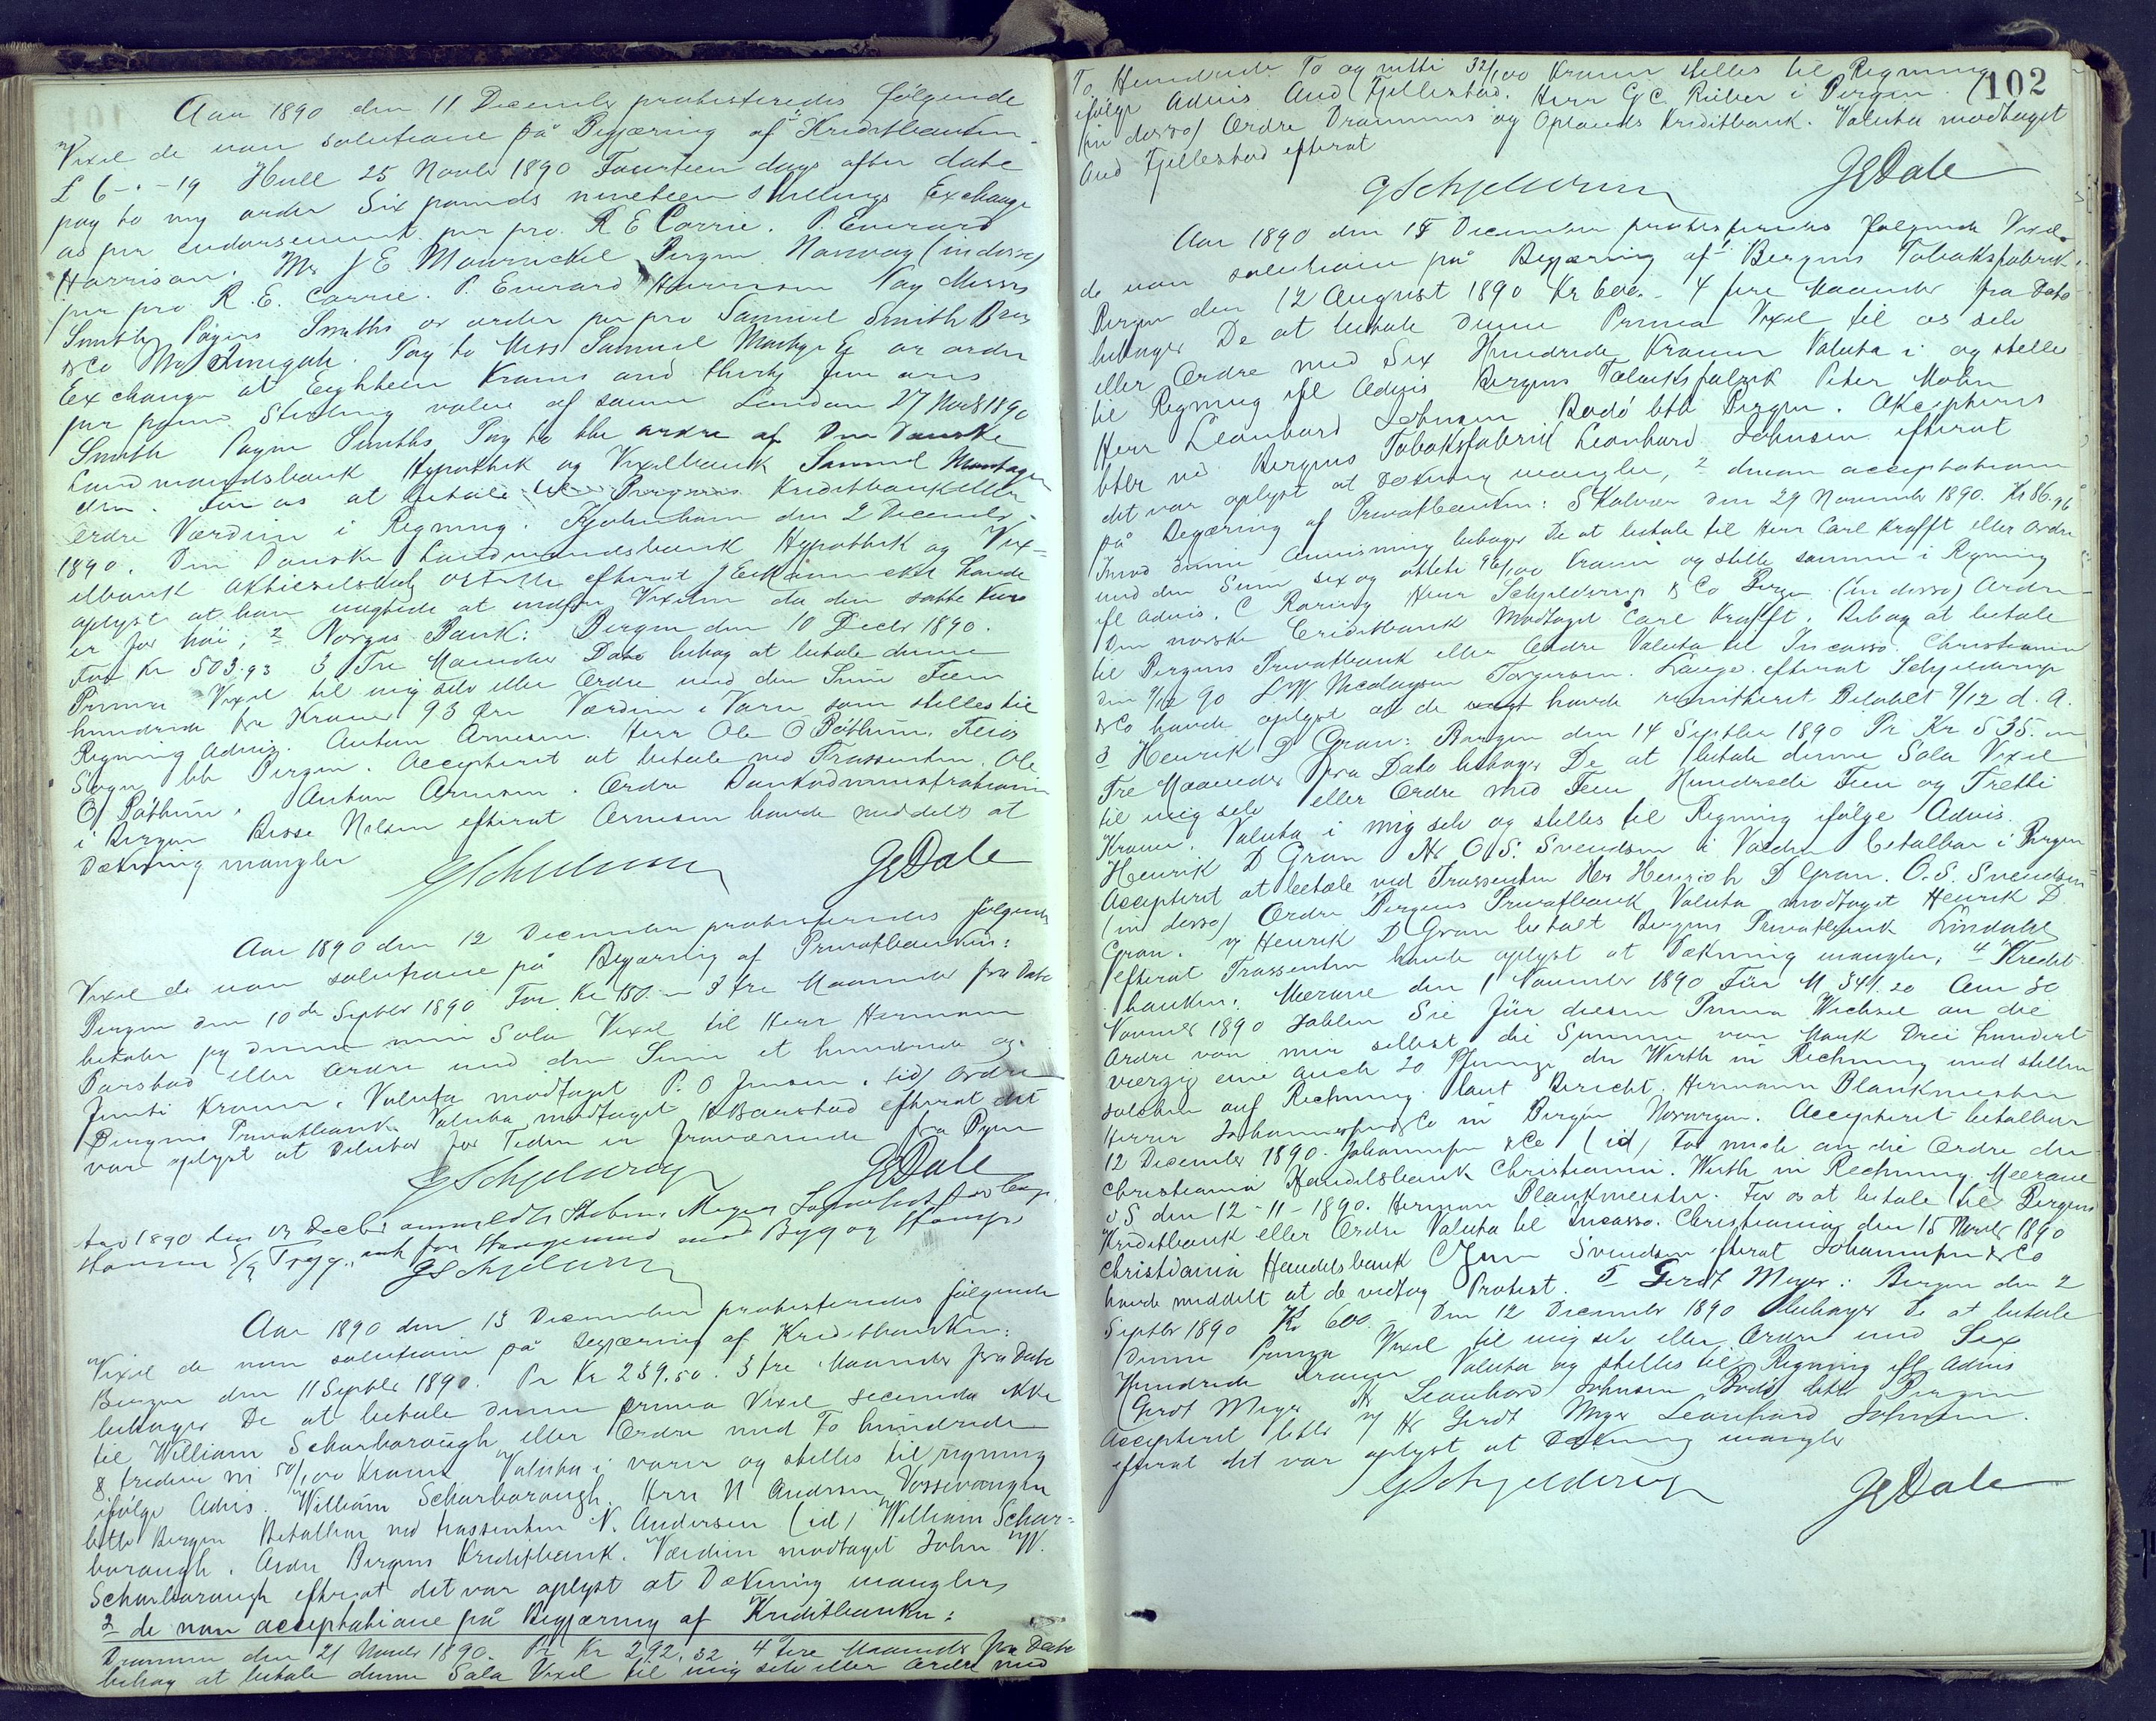 Aar 1890 den 11 December protesteredes følgende
Vexel de non solutione på Begjæring af Kreditbanken
£ 6-"-19 Hull 25 Novbr 1890 Fourteen days after date
pay to my order Six pounds nineteen Shillings Exchange
as per endorsement per pro. R E Corrie. P. Everard
Harrison. Mr J E Mowinckel Bergen Norway (indosso)
per pro R. E. Corrie. P. Everard Harrison Pay Messrs
Smith Payne Smiths or order per pro Samuel Smith Bros
& Co Pay to Mess Samuel Montagu & or order
Exchange at Eighteen Kroner and thirty five øres
per pound Sterling value of same London 27 Novb 1890
Smith Payne Smiths Pay to the ordre af Den Danske
Landmandsbank Hypothek og Vexelbank Samuel Montagu
For os at betale til Bergens Kreditbank eller
Ordre Værdien i Regning. Kjøbenhavn den 2 December
1890. Den Danske Landmandsbank Hypothek og Vex=
elbank Aktieselskab efterat J E Mowinckel havde
oplyst at han nægtede at indfri Vexelen da den satte Kurs
er for høi; 2 Norges Bank: Bergen den 10 Decbr 1890.
For Kr 503.93 3 Tre Maaneder Dato behag at betale denne
Prima Vexel til mig selv eller Ordre med den Sum Fem
hundrede tre Kroner 93 Øre Værdien i Varer som stilles til
Regning Advis. Anton Arnesen. Herr Ole O Bøthun, Feios
Sogn btb Bergen. Accepteret at betale ved Trassenten. Ole
O Bøthun. Anton Arnesen. Ordre Bankadministrationen
i Bergen Risse Nilsen efterat Arnesen havde meddelt at
Dækning mangler
GSchjelderup JEDale
Aar 1890 den 12 December protesteredes følgende
Vexel de non solutione på Begjæring af Privatbanken:
Bergen den 10de Septbr 1890 For Kr 150.- 3 tre Maaneder fra Dato
betaler jeg denne min Sola Vexel til Herr Hermann
Barstad eller Ordre med den Sum et hundrede og
femti Kroner. Valuta modtaget P. O Jensen. (id) Ordre
Bergens Privatbank Valuta modtaget HBarstad efterat det
var oplyst at Debitor for Tiden er fraværende fra Byen
GSchjelderup JEDale
Aar 1890 den 13 Decbr anmeldte
GSchjelderup
Aar 1890 den 13 December protesteredes følgende
Vexel de non solutione på Begjæring af Kreditbanken:
Bergen den 11 Septbr 1890. Pr Kr 239.50. 3 tre Maaneder fra Dato
behager De at betale denne prima Vexel secunda ikke
til William Scharborough eller Ordre med To hundrede
& tredive ni 50/100 Kroner Valuta i varer og stilles til regning
ifølge Advis. William Scharborough. Herr N Andersen Vossevangen
btb Bergen Betalbar ved trassenten N. Andersen (id) William Schar=
borough. Ordre Bergens Kreditbank. Værdien modtaget John W.
Scharborough efterat det var oplyst at Dækning mangler,
2 de non acceptatione på Begjæring af Kreditbanken:
Drammen den 21 Novbr 1890. Pr Kr 292.32 4 Fire Maaneder fra Dato
behag at betale denne Sola Vexel til mig selv eller Ordre med
102
To Hundrede To og nitti 32/100 Kroner stilles til Regning
ifølge Advis And Fjellestad. Herr G C Rieber i Bergen
(in dosso) Ordre Drammens og Oplands Kreditbank. Valuta modtaget
And Fjellestad efterat
GSchjelderup JEDale
Aar 1890 den 15 December protesteredes følgende Vexel
de non solutione på Begjæring af 1 Bergens Tobaksfabrik:
Bergen den 12 August 1890 Kr 600.- 4 fire Maaneder fra Dato
behager De at betale denne Prima Vexel til os selv
eller Ordre med Sex Hundrede Kroner Valuta i og stilles
til Regning ifl Advis Bergens Tobaksfabrik Peter Mohn
Herr Leonhard Johnsen Bodø btb Bergen. Accepteres
btbr ved Bergens Tobaksfabrik Leonhard Johnsen efterat
det var oplyst at Dækning mangler, 2 de non acceptatione
på Begjæring af Privatbanken: S Kalvær den 29 November 1890. Kr 86.96
Imod denne Anvisning behager De at betale til Herr Carl Krafft eller Ordre
med den Sum sex og ottete 96/100 Kroner og stille samme i Regning
ifl Advis. C Roring Herr Schjelderup & Co Bergen (in dosso) Ordre
Den norske Creditbank Modtaget Carl Krafft. Behag at betale
til Bergens Privatbank eller Ordre Valuta til Incasso. Christiania
den 9/12 90 L W Nicolaysen Torgersen. Lange. efterat Schjelderup
& Co havde oplyst at de havde remitteret Beløbet 9/12 d. A.
3 Henrik D Gran: Bergen den 14 Septbr 1890 Pr Kr 535.-
Tre Maaneder fra Dato behager De at betale denne Sola Vexel
til mig selv eller Ordre med Fem Hundrede Fem og Tretti
Kroner. Valuta i mig selv og stilles til Regning ifølge Advis.
Henrik D Gran Hr O. S. Svendsen i Vadsø betalbar i Bergen
Accepteret at betale ved Trassenten Her Henrich D Gran. O. S. Svendsen
(in dosso) Ordre Bergens Privatbank Valuta modtaget Henrik D
Gran. Henrik D Gran betalt Bergens Privatbank Lindahl
efterat Trassenten havde oplyst at Dækning mangler, 4 Kredit=
banken: Meerane den 1 November 1890 Für M 341.20 Am 30
November 1890 zahlen Sie für diesen Prima Wechsel an die
Ordre von mir selbst die Summe von Mark Drei hundert
vierzig eine auch 20 Pfennige den Werth in Rechnung und stellen
solchen auf Rechnung laut Bericht. Hermann Blankmeister
Herren Johannesen & Co in Bergen Norwegen. Accepteret betalbar
12 December 1890. Johannesen & Co (id) Für mich an die Ordre der
Christiania Handelsbank Christiania. Werth in Rechnung Meerane
i/S den 12-11-1890. Herman Blankmeister. For os at betale til Bergens
Kreditbank eller Ordre Valuta til Incasso. Christiania den 15 Novbr 1890
Christiania Handelsbank Svendsen efterat Johannesen & Co
havde meddelt at de vedtog Protest. 5 Gerdt Meyer: Bergen den 2
Septbr 1890 Kr 600. Den 12 December 1890 behager De at betale
denne Prima Vexel til mig selv eller Ordre med Sex
Hundrede Kroner Valuta og stilles til Regning ifl Advis
Gerdt Meyer Hr Leonhard Johnsen Bodø btb Bergen
Accepteret btbr v/ Hr Gerdt Meyer Leonhard Johnsen.
efterat det var oplyst at Dækning mangler
GSchjelderup JEDale